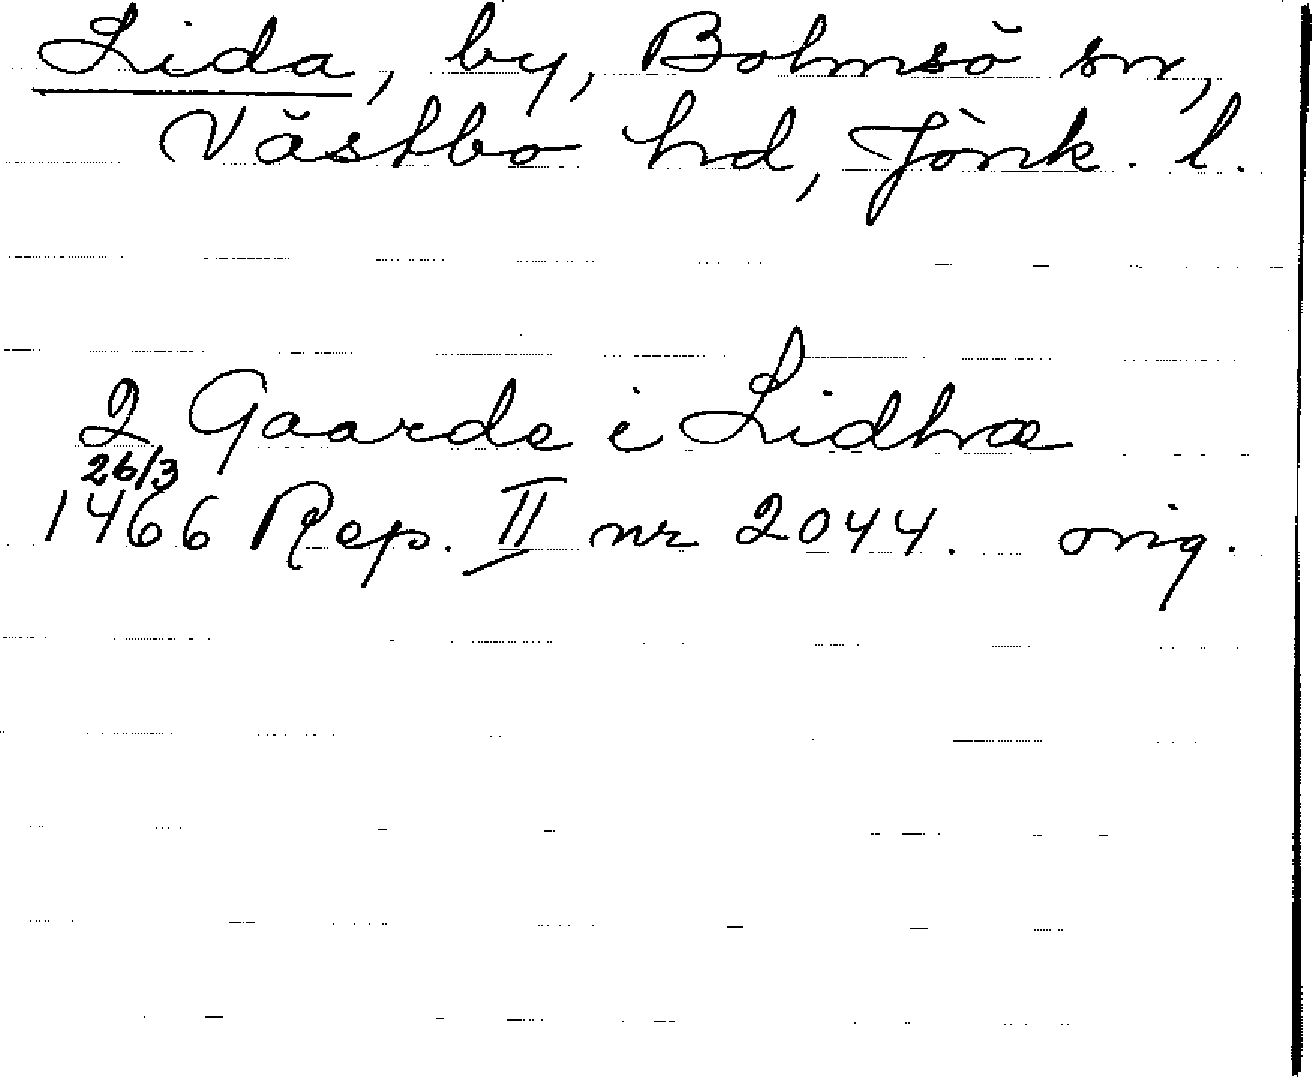 Lida, by, Bolmsö sn,
Västbo hd, Jönk. l.
2 Gaarde i Lidhræ
26/3
1466 Rep. II nr 2044. orig.